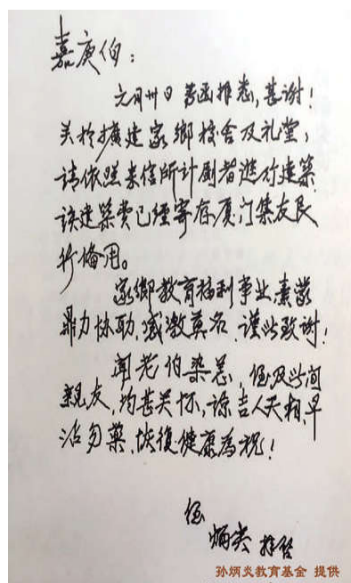 嘉庚伯：
六月卅日 芳函拜悉，甚谢！
关於擴建家鄉校舍及礼堂，
请依照来信所计划者進行建築
该建築费已經寄存厦门集友民
行備用。
家鄉教育福利事业，素蒙
鼎力协助，感激莫名，谨此致谢！
闻老伯染恙，侄及此间
親友，均甚关怀，谅吉人天相，早
沾勿藥，恢復健康為祝！
侄
炳炎 拜啓
孙炳炎教育基金 提供